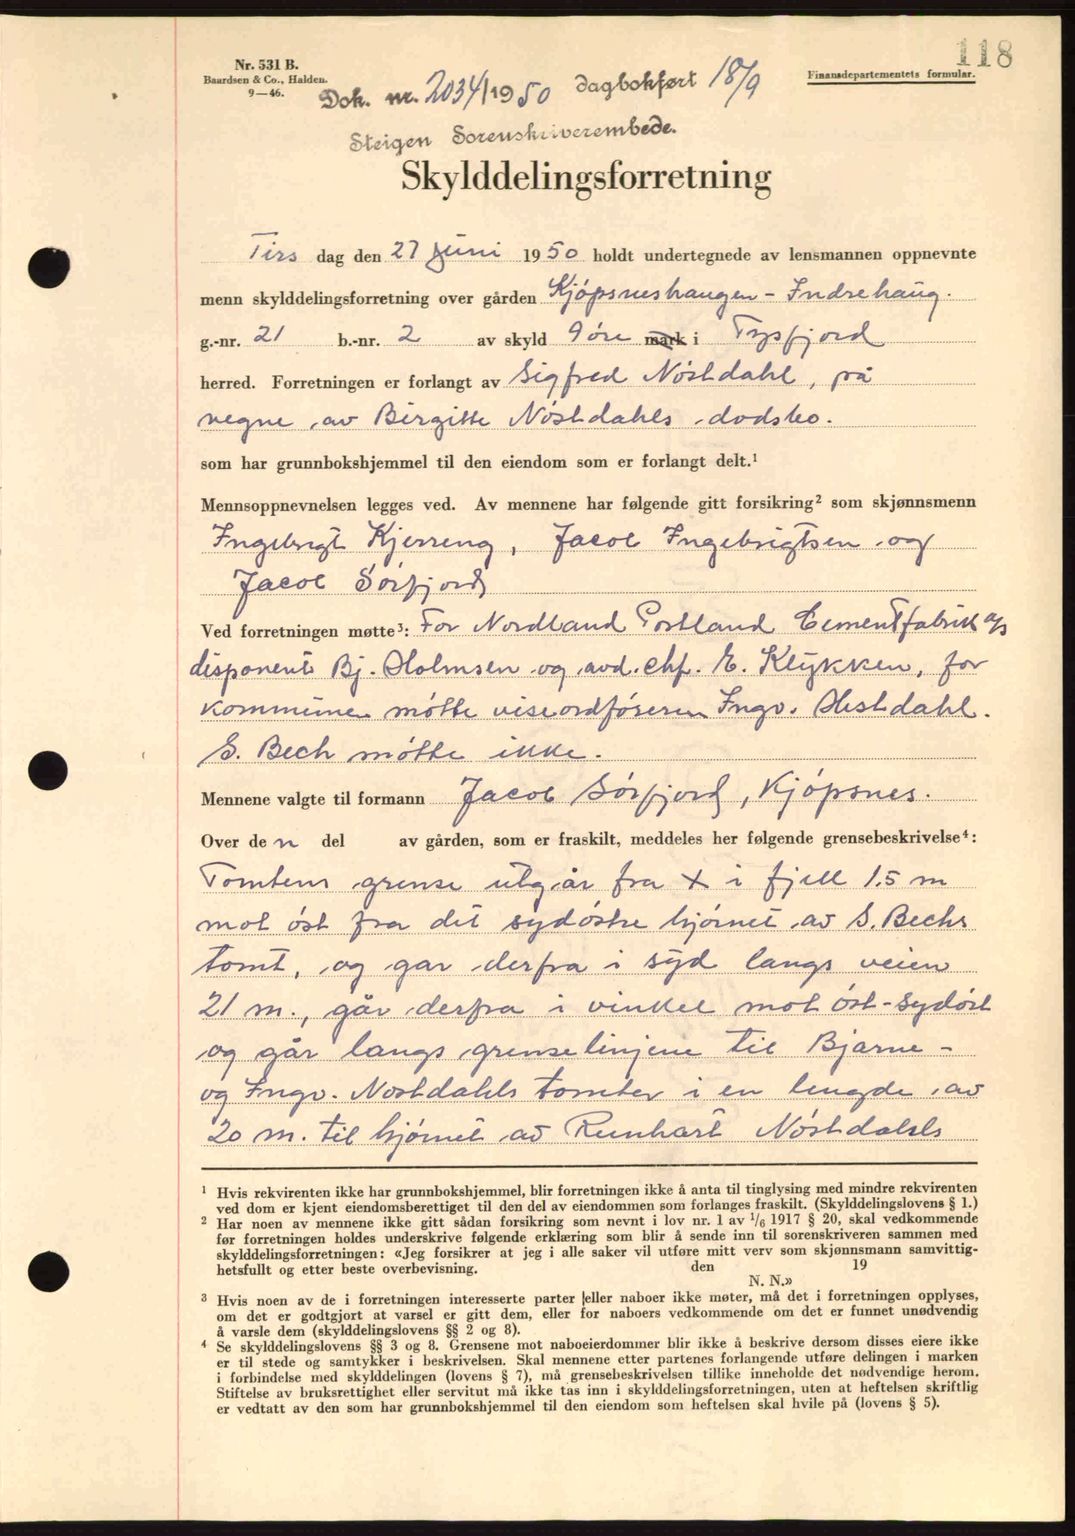 118
Nr. 531 B.
Baardsen & Co., Halden.
9—46.
Finansdepartementets formular.
Dok. nr. 2034/1950 dagbokført 18/9
Steigen Sorenskriverembede.
Skylddelingsforretning
Tirs dag den 27 juni 1950 holdt undertegnede av lensmannen oppnevnte
menn skylddelingsforretning over gården Kjøpsneshaugen - Indrehaug.
g.-nr. 21 b.-nr. 2 av skyld 9 øre mark i Tysfjord
herred. Forretningen er forlangt av Sigfred Nøstdahl, på
vegne av Birgitte Nøstdahls dødsbo.
som har grunnbokshjemmel til den eiendom som er forlangt delt.¹
Mennsoppnevnelsen legges ved. Av mennene har følgende gitt forsikring² som skjønnsmenn
Ingebrigt Kjerreng, Jacob Ingebrigtsen og
Jacob Sørfjord
Ved forretningen møtte³: For Nordland Portland Cementfabrik a/s
disponent Bj. Holmsen og avd. chf. E. Klykken, for
kommunen møtte viseordføreren Ingv. Hestdahl.
S. Bech møtte ikke.
Mennene valgte til formann Jacob Sørfjord, Kjøpsnes.
Over den del av gården, som er fraskilt, meddeles her følgende grensebeskrivelse⁴:
Tomtens grense utgår fra X i fjell 1.5 m
mot øst fra det sydøstre hjørnet av S. Bechs
tomt, og går derfra i syd langs veien
21 m., går derfra i vinkel mot øst-sydøst
og går langs grenselinjene til Bjarne-
og Ingv. Nøstdahls tomter i en lengde av
20 m. til hjørnet av Reinhart Nøstdahls
¹ Hvis rekvirenten ikke har grunnbokshjemmel, blir forretningen ikke å anta til tinglysing med mindre rekvirenten
ved dom er kjent eiendomsberettiget til den del av eiendommen som forlanges fraskilt. (Skylddelingslovens § 1.)
² Har noen av mennene ikke gitt sådan forsikring som nevnt i lov nr. 1 av 1/6 1917 § 20, skal vedkommende
før forretningen holdes underskrive følgende erklæring som blir å sende inn til sorenskriveren sammen med
skylddelingsforretningen: «Jeg forsikrer at jeg i alle saker vil utføre mitt verv som skjønnsmann samvittig-
hetsfullt og etter beste overbevisning. den 19
N. N.»
³ Hvis noen av de i forretningen interesserte parter eller naboer ikke møter, må det i forretningen opplyses,
om det er godtgjort at varsel er gitt dem, eller for naboers vedkommende om det er funnet unødvendig
å varsle dem (skylddelingslovens §§ 2 og 8).
⁴ Se skylddelingslovens §§ 3 og 8. Grensene mot naboeierdommer blir ikke å beskrive dersom disses eiere ikke
er til stede og samtykker i beskrivelsen. Skal mennene etter partenes forlangende utføre delingen i marken
i forbindelse med skylddelingen (lovens § 7), må grensebeskrivelsen tillike inneholde det nødvendige herom.
Stiftelse av bruksrettighet eller servitut må ikke tas inn i skylddelingsforretningen, uten at heftelsen skriftlig
er vedtatt av den som har grunnbokshjemmel til den eiendom som heftelsen skal hvile på (lovens § 5).